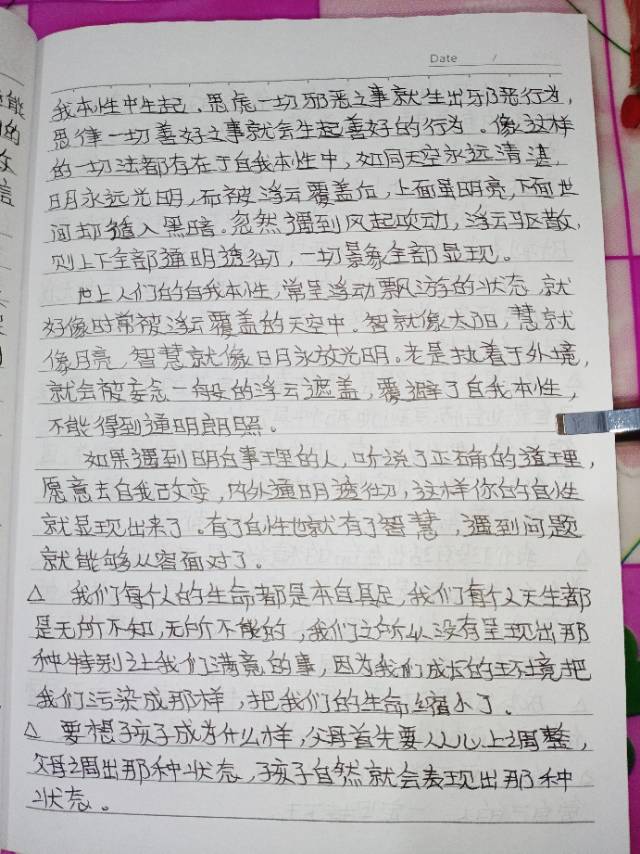 Date /
我本性中生起、思虑一切邪恶之事就生出邪恶行为,
思律一切善好之事就会生起善好的行为。像这样
的一切法都存在于自我本性中,如同天空永远清湛,
日月永远光明,而被浮云覆盖住,上面虽明亮,下面世
间却插入黑暗。忽然遇到风起吹动,浮云驱散,
则上下全部通明透彻,一切景象全部显现。
世上人们的自我本性,常呈浮动飘游的状态,就
好像时常被浮云覆盖的天空中。智就像太阳,慧就
像月亮,智慧就像日月永放光明。老是执着于外境,
就会被妄念一般的浮云遮盖,覆避了自我本性,
不能得到通明朗照。
如果遇到明白事理的人,听说了正确的道理,
愿意去自我改变,内外通明透彻,这样你的自性
就显现出来了。有了自性也就有了智慧,遇到问题
就能够从容面对了。
△ 我们每个人的生命都是本自具足,我们每个人天生都
是无所不知,无所不能的,我们之所以没有呈现出那
种特别让我们满意的事,因为我们成长的环境把
我们污染成那样,把我们的生命缩小了。
△ 要想孩子成为什么样,父母首先要从心上调整,
父母调出那种状态,孩子自然就会表现出那种
状态。